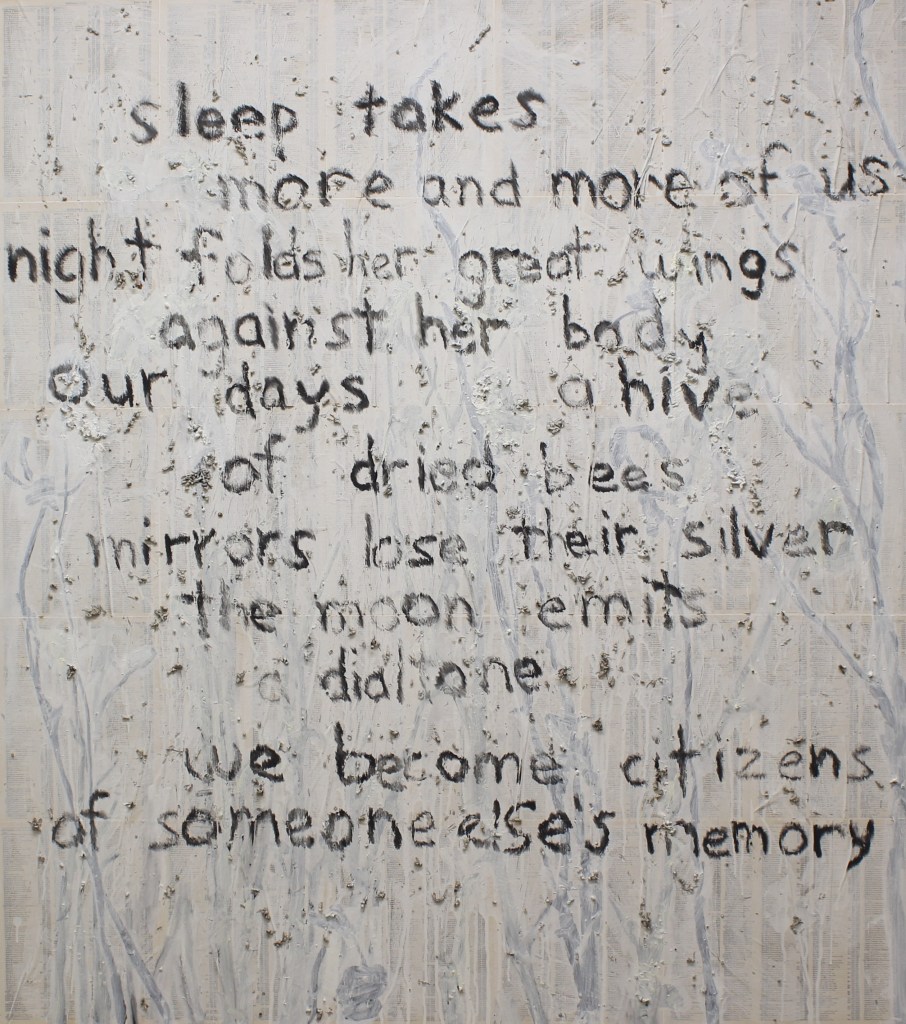 sleep takes
more and more of us
night folds her great wings
against her body
our days a hive
of dried bees
mirrors lose their silver
the moon emits
a dial tone
we become citizens
of someone else's memory